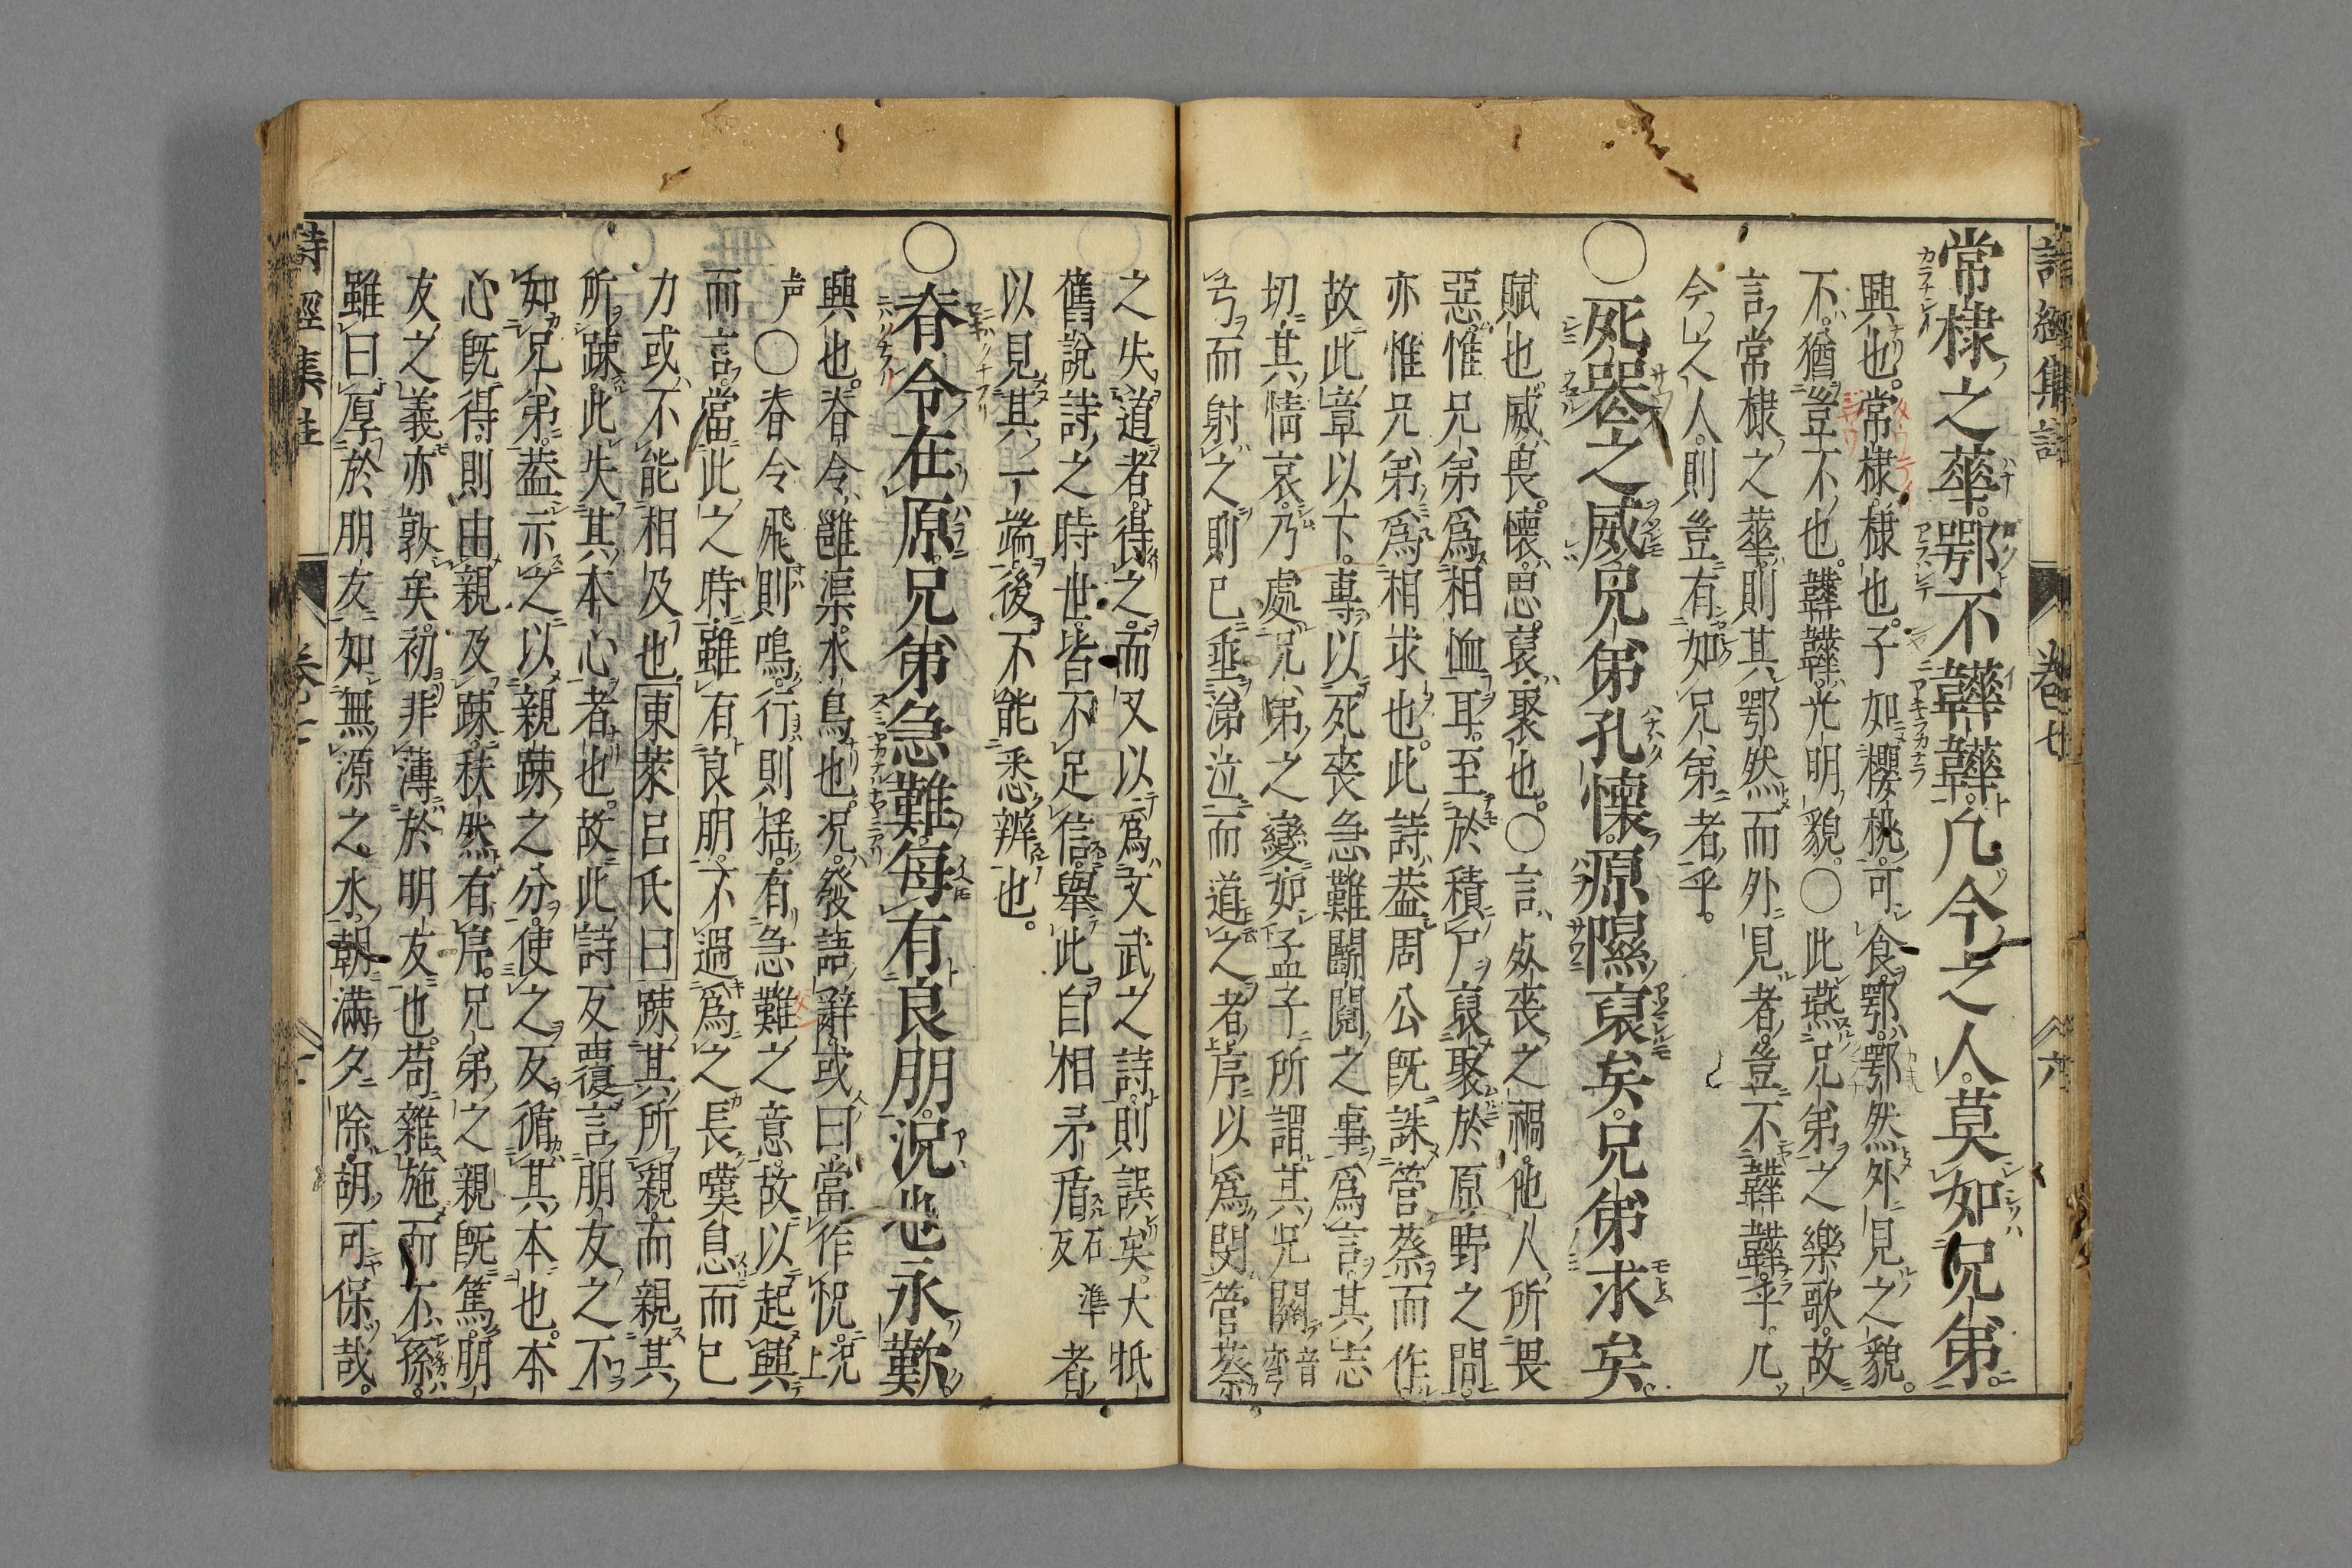 常棣之華鄂不韡韡凡今之人莫如兄弟
興也。常棣棣也。子如櫻桃可食鄂鄂然外見之貌。
不猶豈不也。韡韡光明貌。〇此燕兄弟之樂歌。故
言常棣之華則其鄂然而外見者豈不韡韡乎。凡
今之人則豈有如兄弟者乎。
〇死喪之威兄弟孔懷原隰裒矣兄弟求矣
賦也威畏。懷思。裒聚也。〇言死喪之禍他人所畏
惡惟兄弟爲相恤耳。至於積尸裒聚於原野之間。
亦惟兄弟爲相求也。此詩蓋周公既誅管蔡而作
故此章以下。專以死喪急難鬪鬩之事爲言其志
切其情哀。乃處兄弟之變如孟子所謂其兄關音彎
弓而射之則已垂涕泣而道之者序以爲閔管蔡
之失道者得之而又以爲文武之詩則誤矣大抵
舊說詩之時世皆不足信舉此自相矛盾石準反者
以見其一端後不能悉辨也。
〇脊令在原兄弟急難每有良朋況也永歎
興也。脊令雝渠。水鳥也。況發語辭或曰當作怳。況上
声〇脊令飛則鳴行則搖有急難之意故以起興
而言當此之時雖有良朋不過爲之長嘆息而已
力或不能相及也東萊呂氏曰踈其所親而親其
所踈此失其本心者也。故此詩反覆言朋友之不
如兄弟蓋示之以親踈之分使之反循其本也。本
心既得則由親及踈秩然有序。兄弟之親既篤朋
友之義亦敦矣初非薄於朋友也。苟雜施而不孫。
雖曰厚於朋友如無源之水朝滿夕除胡可保哉。